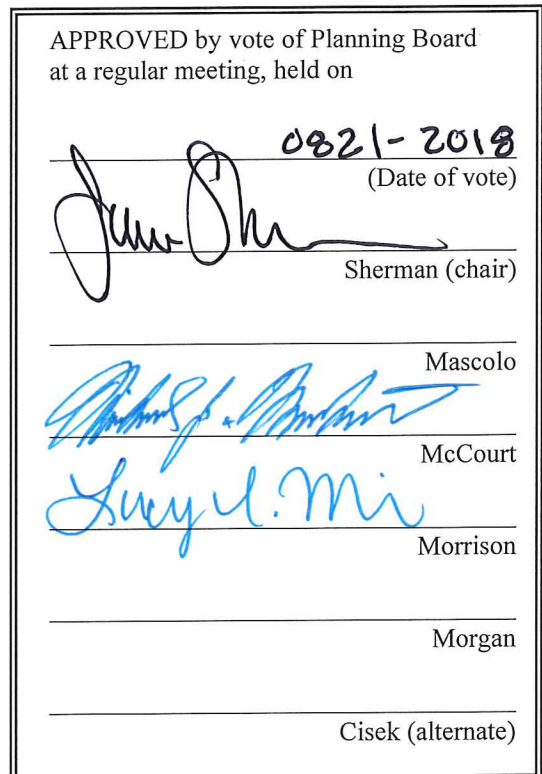 APPROVED by vote of Planning Board
at a regular meeting, held on
0821-2018
(Date of vote)
Sherman (chair)
Mascolo
McCourt
Lucy
Morrison
Morgan
Cisek (alternate)